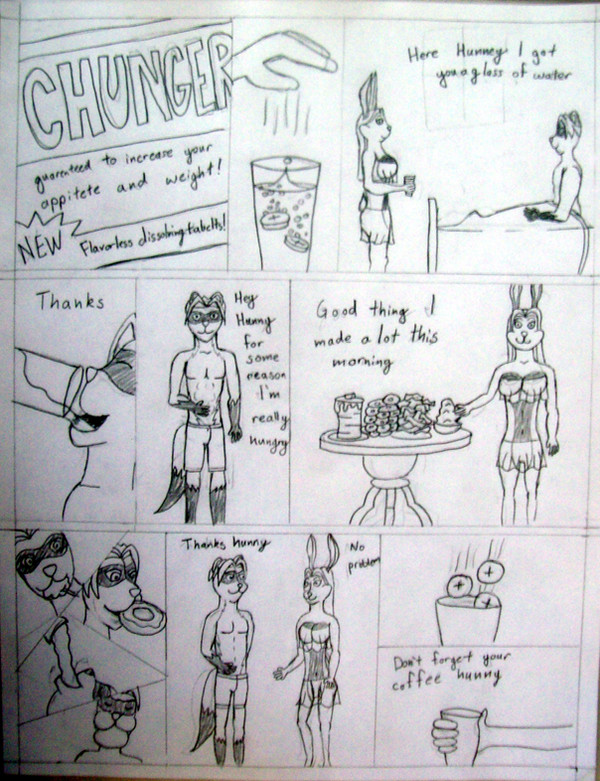 CHUNGER
guarenteed to increase your
appitete and weight!
NEW
Flavorless dissolving tabelts!
Here Hunney I got
you a glass of water
Thanks
Hey
Hunny
for
some
reason
I'm
really
hungry
Good thing I
made a lot this
morning
Thanks hunny
No
problem
Don't forget your
coffee hunny